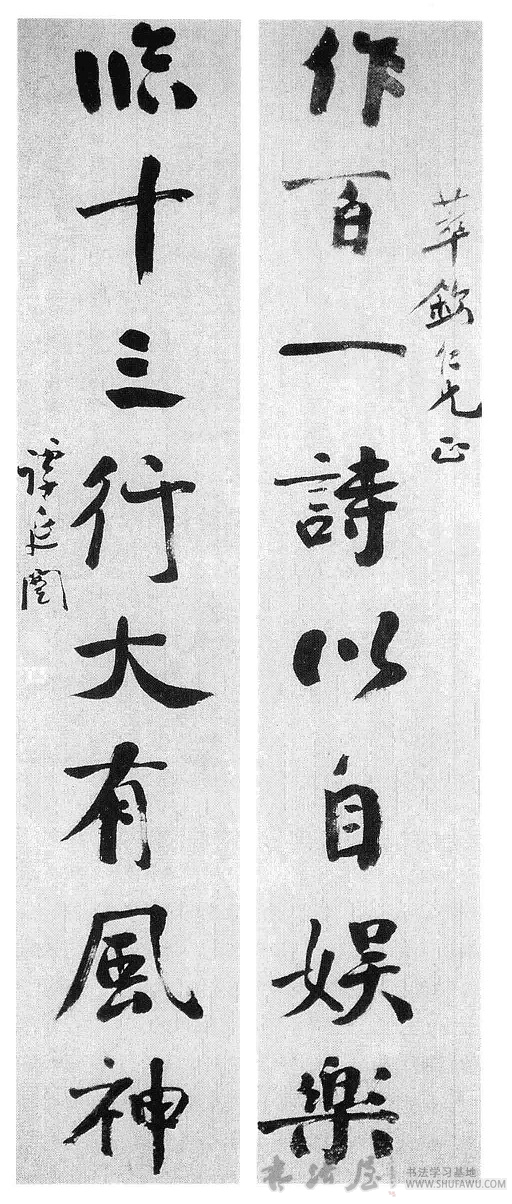 萃欽仁兄正
作百一詩以自娛樂
臨十三行大有風神
譚延闓
书法屋
书法学习基地
WWW.SHUFAWU.COM